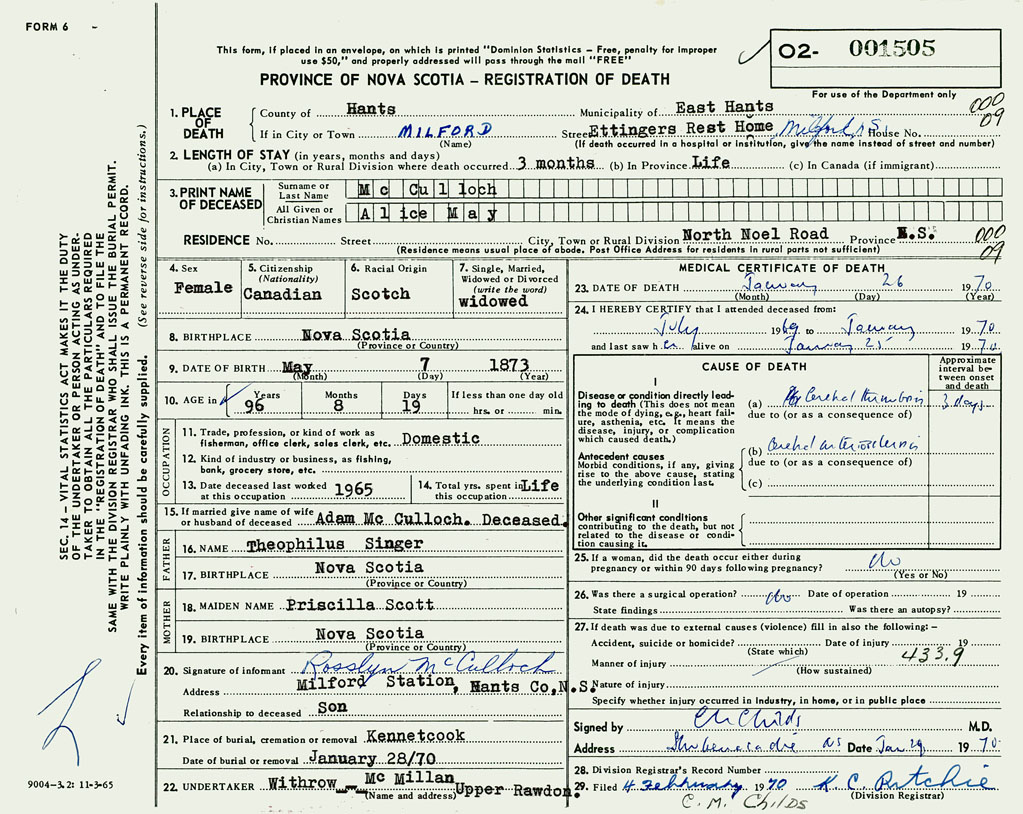 FORM 6 -
This form, if placed in an envelope, on which is printed "Dominion Statistics - Free, penalty for improper
use $50," and properly addressed will pass through the mail "FREE"
PROVINCE OF NOVA SCOTIA - REGISTRATION OF DEATH
O2- 001505
For use of the Department only
000
09
1. PLACE OF DEATH
County of Hants Municipality of East Hants
If in City or Town MILFORD Street Ettingers Rest Home Milford, N.S. House No.
(Name) (If death occurred in a hospital or institution, give the name instead of street and number)
2. LENGTH OF STAY (in years, months and days)
(a) In City, Town or Rural Division where death occurred 3 months (b) In Province Life (c) In Canada (if immigrant)
3. PRINT NAME OF DECEASED
Surname or Last Name Mc Culloch
All Given or Christian Names Alice May
RESIDENCE No. Street City, Town or Rural Division North Noel Road Province N.S.
(Residence means usual place of abode. Post Office Address for residents in rural parts not sufficient)
000
09
4. Sex
Female
5. Citizenship
(Nationality)
Canadian
6. Racial Origin
Scotch
7. Single, Married,
Widowed or Divorced
(write the word)
widowed
8. BIRTHPLACE Nova Scotia
(Province or Country)
9. DATE OF BIRTH May 7 1873
(Month) (Day) (Year)
10. AGE in Years Months Days If less than one day old
96 8 19 hrs. or min.
OCCUPATION
11. Trade, profession, or kind of work as
fisherman, office clerk, sales clerk, etc. Domestic
12. Kind of industry or business, as fishing,
bank, grocery store, etc.
13. Date deceased last worked
at this occupation 1965
14. Total yrs. spent in
this occupation Life
15. If married give name of wife
or husband of deceased Adam Mc Culloch. Deceased.
FATHER
16. NAME Theophilus Singer
17. BIRTHPLACE Nova Scotia
(Province or Country)
MOTHER
18. MAIDEN NAME Priscilla Scott
19. BIRTHPLACE Nova Scotia
(Province or Country)
20. Signature of informant Rosslyn McCulloch
Address Milford Station, Hants Co, N.S.
Relationship to deceased Son
21. Place of burial, cremation or removal Kennetcook
Date of burial or removal January 28/70
22. UNDERTAKER Withrow -- Mc Millan Upper Rawdon.
(Name and address)
MEDICAL CERTIFICATE OF DEATH
23. DATE OF DEATH January 26 1970
(Month) (Day) (Year)
24. I HEREBY CERTIFY that I attended deceased from:
July 1969 to January 1970
and last saw her alive on January 25 1970
CAUSE OF DEATH
Approximate
interval be-
tween onset
and death
I
Disease or condition directly lead-
ing to death (This does not mean
the mode of dying, e.g., heart fail-
ure, asthenia, etc. It means the
disease, injury, or complication
which caused death.)
(a) Cerebral thrombosis 3 days
due to (or as a consequence of)
Antecedent causes
Morbid conditions, if any, giving
rise to the above cause, stating
the underlying condition last.
(b) Cerebral arteriosclerosis
due to (or as a consequence of)
(c)
II
Other significant conditions
contributing to the death, but not
related to the disease or condi-
tion causing it.
25. If a woman, did the death occur either during
pregnancy or within 90 days following pregnancy? No
(Yes or No)
26. Was there a surgical operation? No Date of operation 19
State findings Was there an autopsy?
27. If death was due to external causes (violence) fill in also the following: -
Accident, suicide or homicide? Date of injury 19
(State which)
433.9
Manner of injury
(How sustained)
Nature of injury
Specify whether injury occurred in Industry, in home, or in public place
Signed by CM Childs M.D.
Address Shubenacadie NS Date Jan 29 1970
28. Division Registrar's Record Number
29. Filed 4 February 1970 K. C. Ritchie
(Division Registrar)
C. M. Childs
SEC. 14 - VITAL STATISTICS ACT MAKES IT THE DUTY
OF THE UNDERTAKER OR PERSON ACTING AS UNDER-
TAKER TO OBTAIN ALL THE PARTICULARS REQUIRED
IN THE "REGISTRATION OF DEATH" AND TO FILE THE
SAME WITH THE DIVISION REGISTRAR WHO SHALL ISSUE THE BURIAL PERMIT.
WRITE PLAINLY WITH UNFADING INK. THIS IS A PERMANENT RECORD.
Every item of information should be carefully supplied. (See reverse side for instructions.)
9004-3.2: 11-3-65